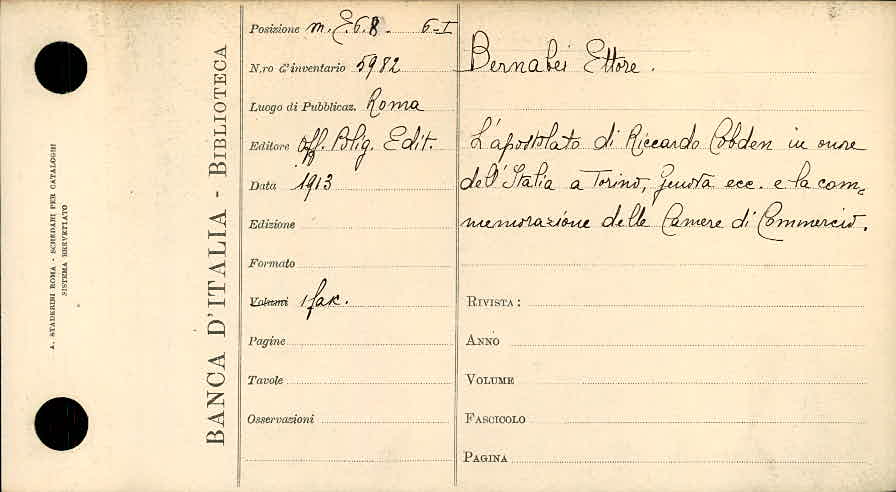 A. STADERINI ROMA - SCHEDARI PER CATALOGHI
SISTEMA BREVETTATO
BANCA D'ITALIA - BIBLIOTECA
Posizione m. E. 6. 8. 6-I
N.ro d'inventario 5982
Luogo di Pubblicaz. Roma
Editore Off. Polig. Edit.
Data 1913
Edizione
Formato
Volumi 1 fak.
Pagine
Tavole
Osservazioni
Bernabei Ettore.
L'apostolato di Riccardo Cobden in onore
dell'Italia a Torino, Genova ecc. e la com=
memorazione delle Camere di Commercio.
RIVISTA:
ANNO
VOLUME
FASCICOLO
PAGINA